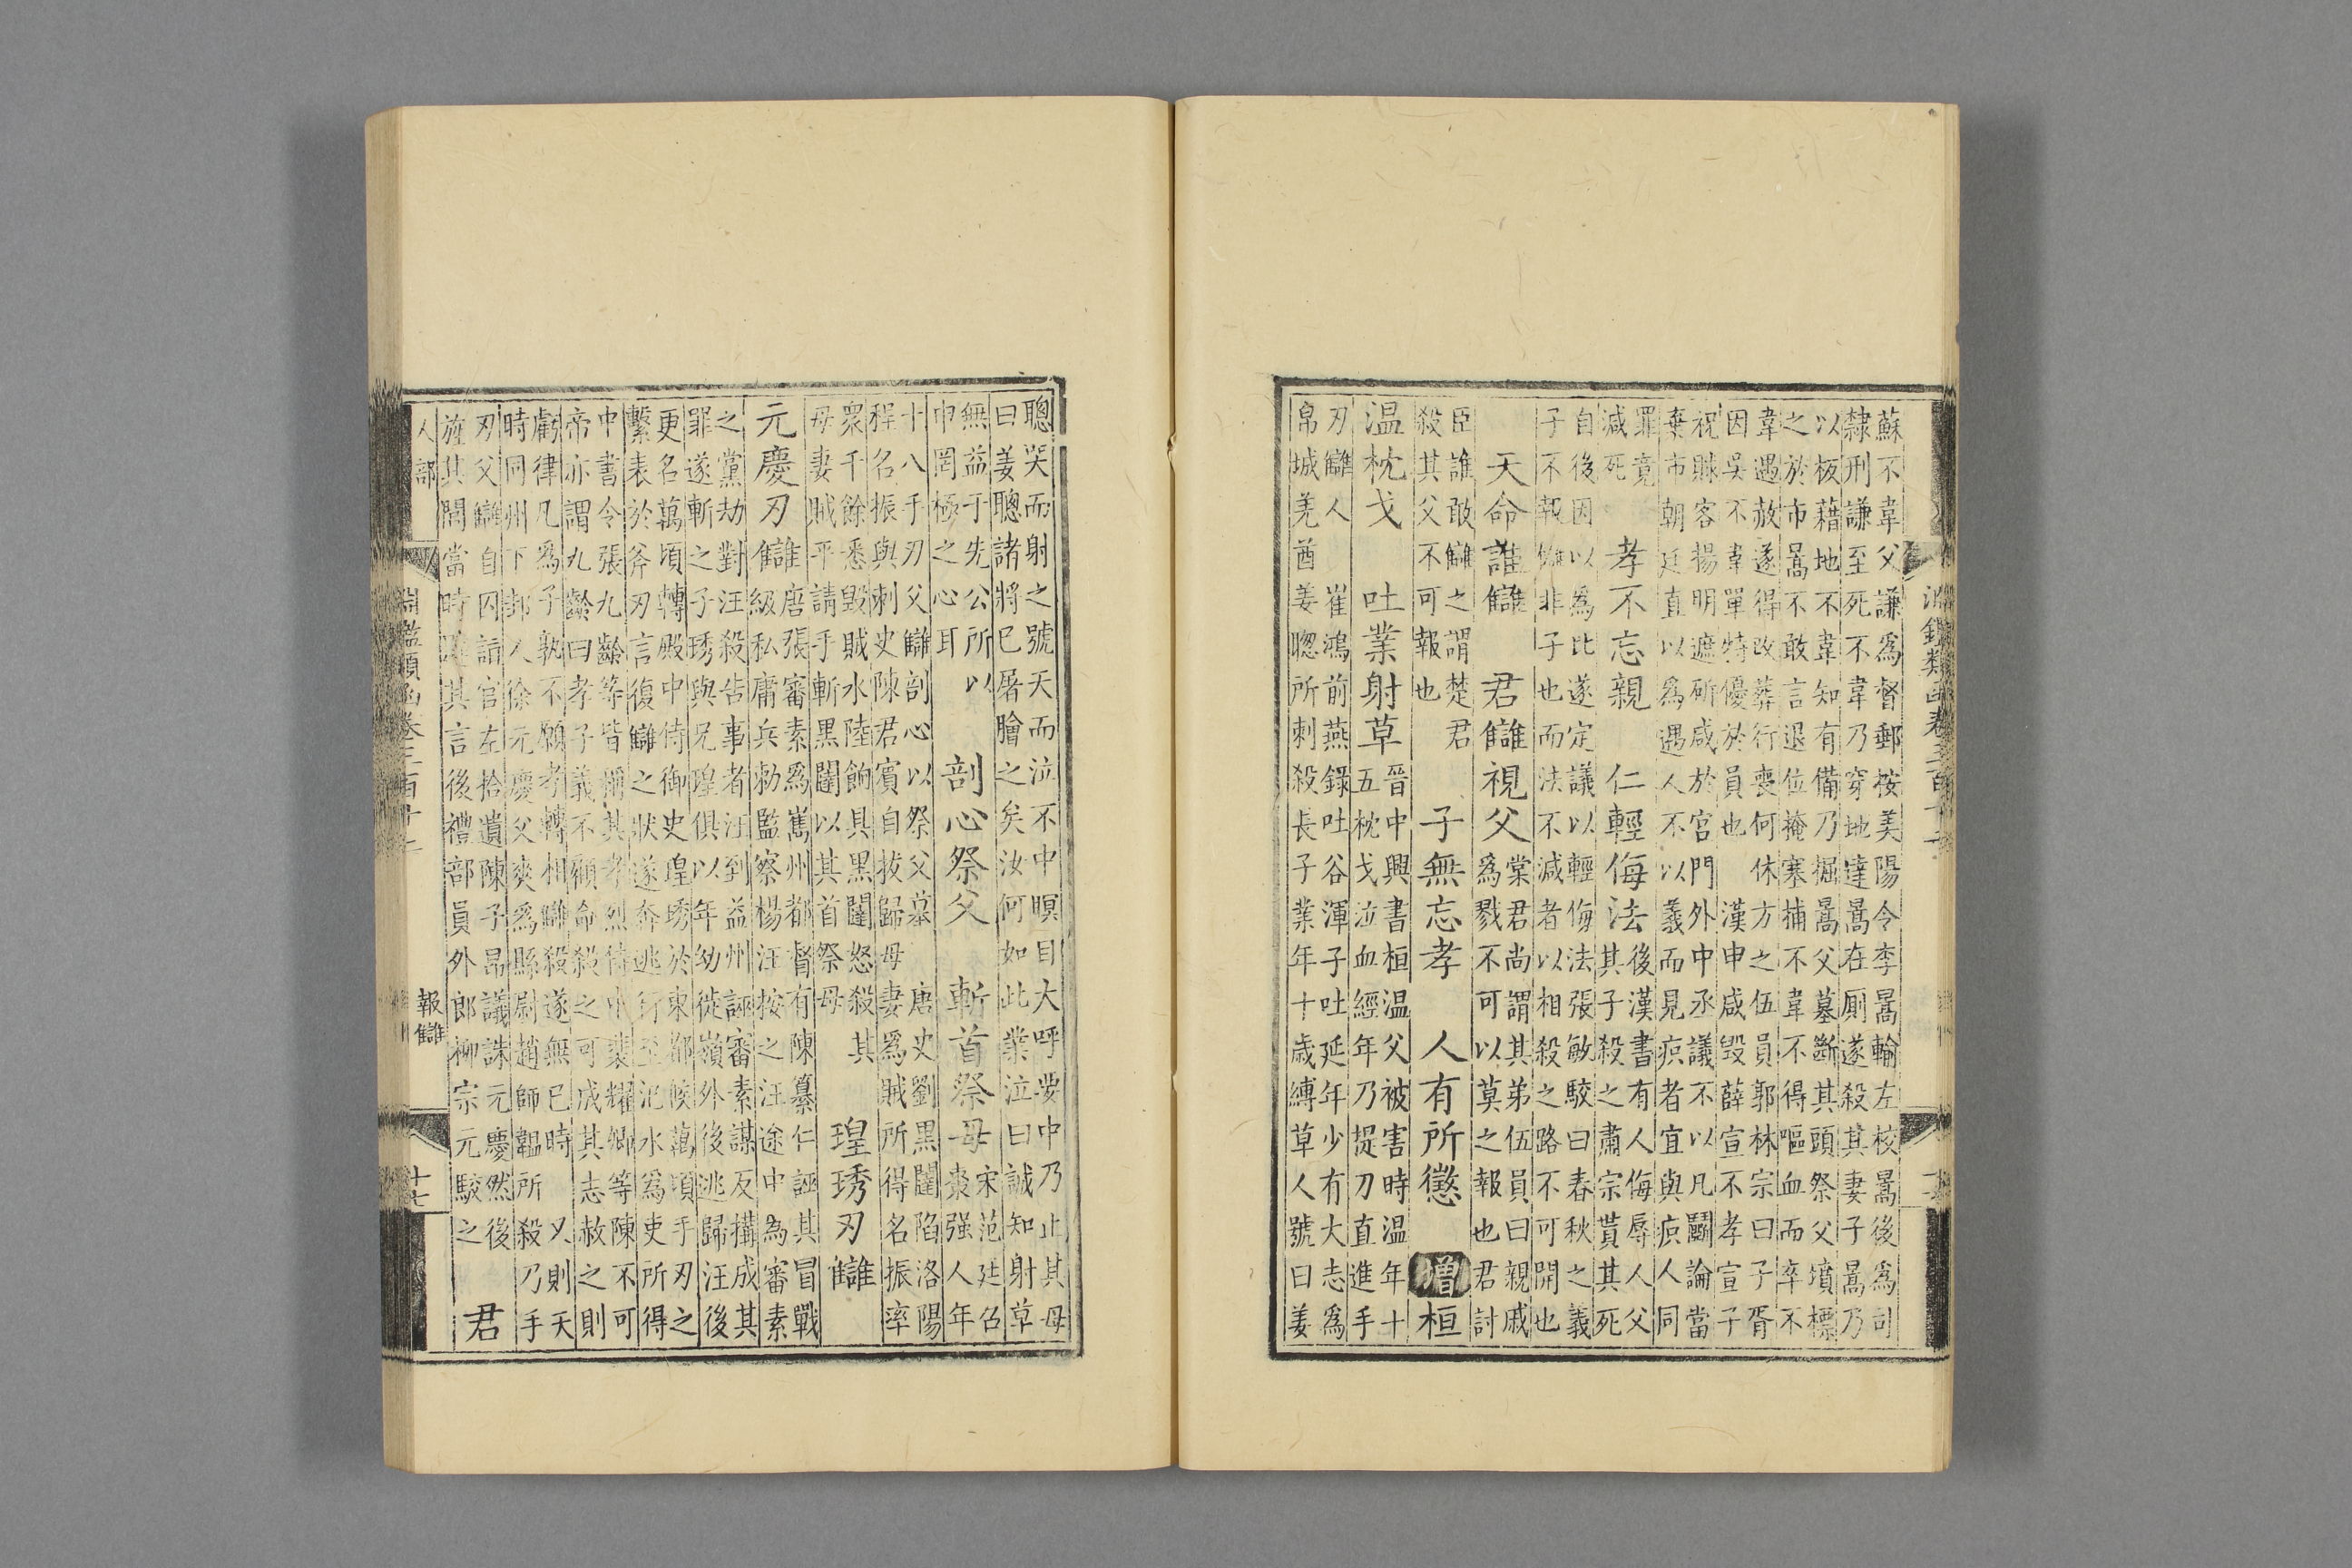 淵鑑類函卷三百十二
蘇不韋父謙為督郵按美陽令李暠輸左校暠後為司
隸刑謙至死不韋乃穿地達暠在厠遂殺其妻子暠乃
以板藉地不韋知有備乃掘暠父墓斷其頭祭父墳標
之於市暠不敢言退位掩塞捕不韋不得嘔血而卒不
韋遇赦遂得改葬行喪何休方之伍員郭林宗曰子胥
因吳不韋單特優於員也 漢申咸毀薛宣不孝宣子
祝賕客揚明遮斫咸於宮門外中丞議不以凡鬬論當
棄市朝廷直以為遇人不以義而見疻者宜與疻人同
罪竟
減死
孝不忘親 仁輕侮法
後漢書有人侮辱人父
其子殺之肅宗貰其死
自後因以為比遂定議以輕侮法張敏駮曰春秋之義
子不報讎非子也而法不減者以相殺之路不可開也
天命誰讎 君讎視父
棠君尚謂其弟伍員曰親戚
為戮不可以莫之報也君討
臣誰敢讎之謂楚君
殺其父不可報也
子無忘孝 人有所懲 增 桓
温枕戈 吐業射草
晉中興書桓温父被害時温年十
五枕戈泣血經年乃提刀直進手
刃讎人 崔鴻前燕錄吐谷渾子吐延年少有大志為
帛城羌酋姜聰所刺殺長子業年十歳縛草人號曰姜
聰哭而射之號天而泣不中瞑目大呼要中乃止其母
曰姜聰諸將已屠膾之矣汝何如此業泣曰誠知射草
無益于先公所以
申罔極之心耳
剖心祭父 斬首祭母
宋范廷召
棗强人年
十八手刃父讎剖心以祭父墓 唐史劉黑闥陷洛陽
程名振與刺史陳君賓自拔歸母妻為賊所得名振率
衆千餘悉毀賊水陸餉具黑闥怒殺其
母妻賊平請手斬黑闥以其首祭母
瑝琇刃讎
元慶刃讎
唐張審素為嶲州都督有陳纂仁誣其冒戰
級私庸兵勅監察楊汪按之汪途中為審素
之黨劫對汪殺告事者汪到益州誣審素謀反搆成其
罪遂斬之子琇與兄瑝俱以年幼徙嶺外後逃歸汪後
更名萬頃轉殿中侍御史瑝琇於東都候萬頃手刃之
繫表於斧刃言復讎之狀遂奔逃行至汜水為吏所得
中書令張九齡等皆稱其孝烈侍中裴耀卿等陳不可
帝亦謂九齡曰孝子義不顧命殺之可成其志赦之則
虧律凡為子孰不願孝轉相讎殺遂無已時 又則天
時同州下邽人徐元慶父爽為縣尉趙師韞所殺乃手
刃父讎自囚詣官左拾遺陳子昂議誅元慶然後
旌其閭當時韙其言後禮部員外郎柳宗元駮之
君
人部 淵鑑類函卷三百十二 報讎 十七